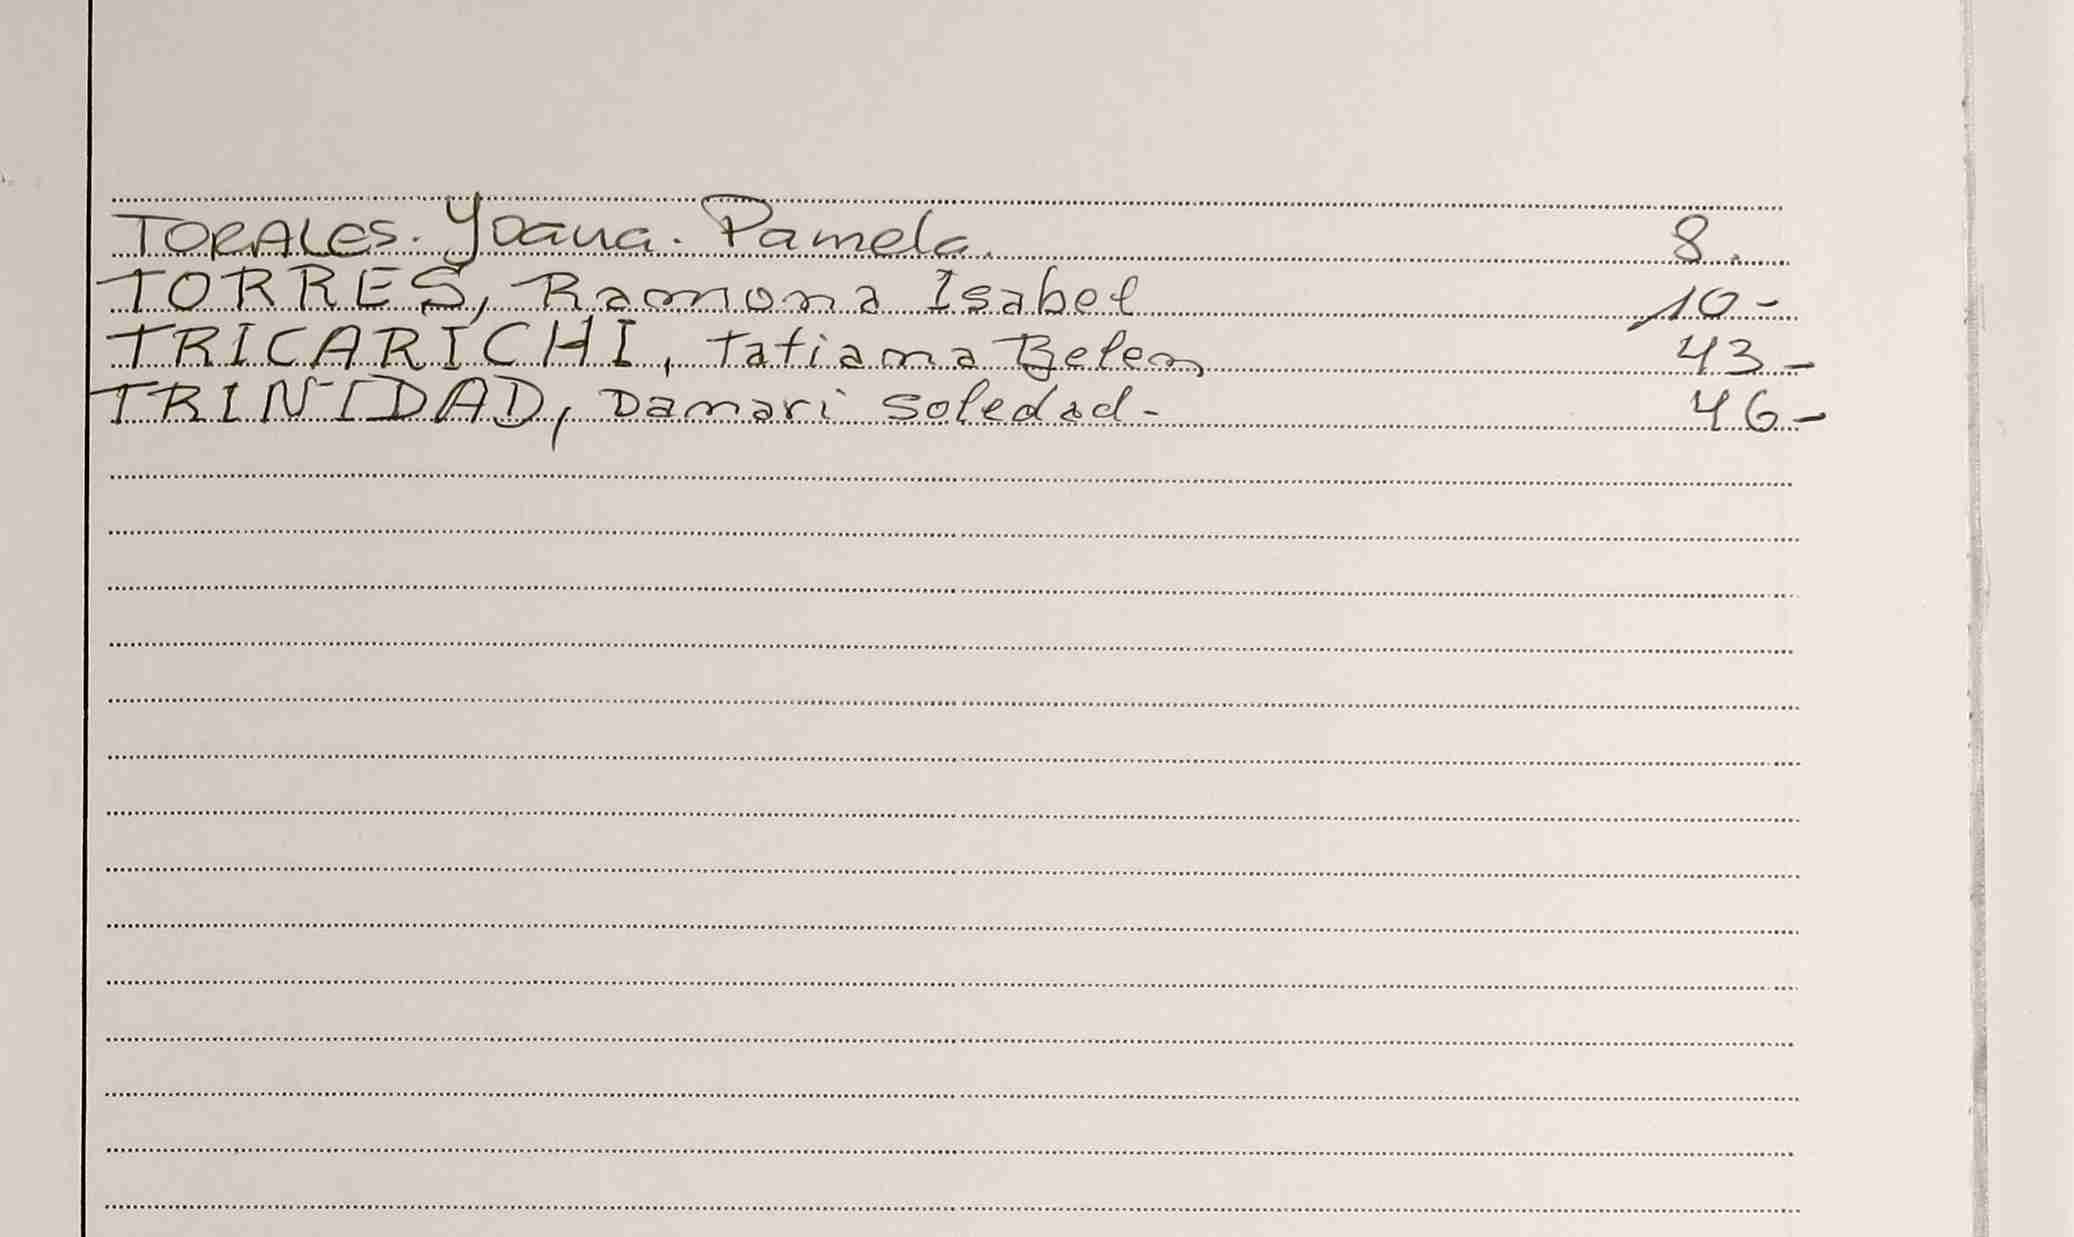 TORALES. Yoana. Pamela. 8.
TORRES, Ramona Isabel 10-
TRICARICHI, Tatiana Belen 43-
TRINIDAD, Damari Soledad- 46-